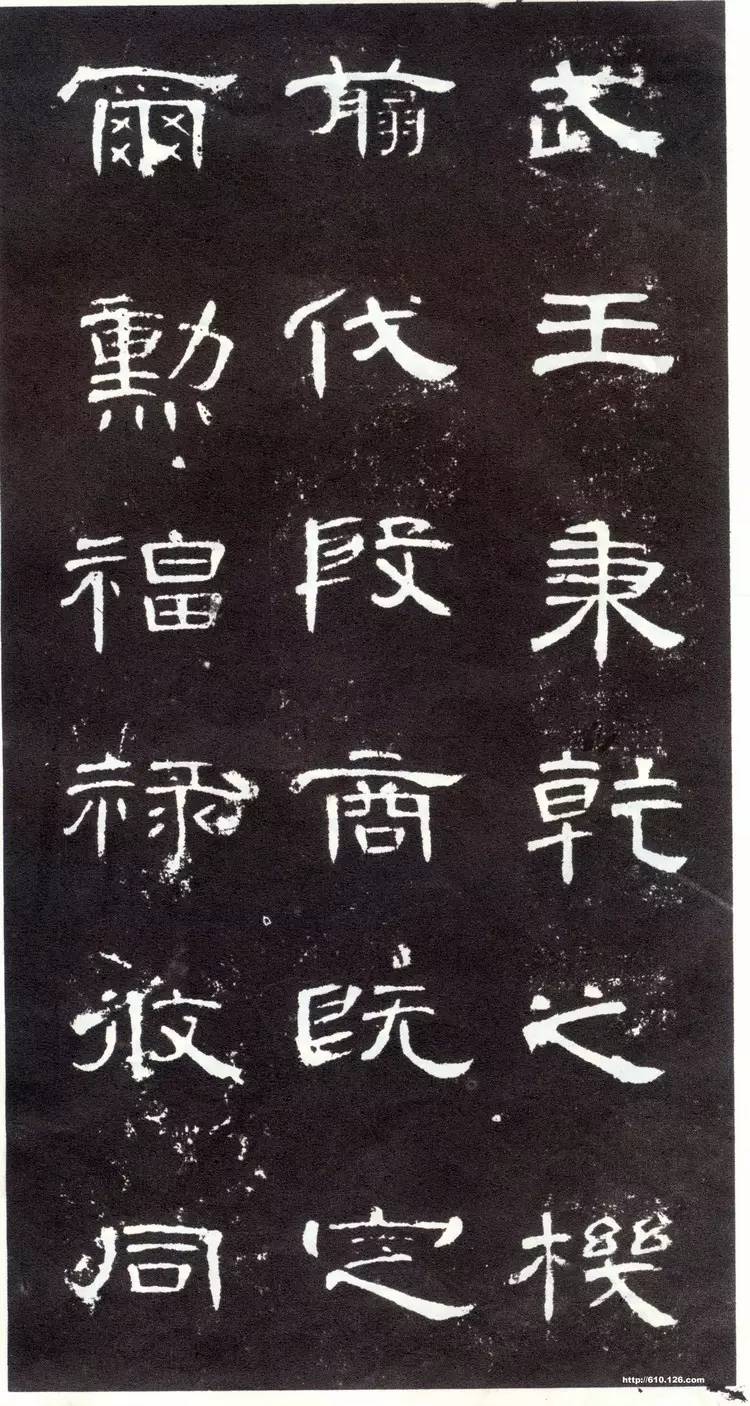 武王秉乾之機
翦伐殷商既定
爾勳福祿攸同
http://610.126.com